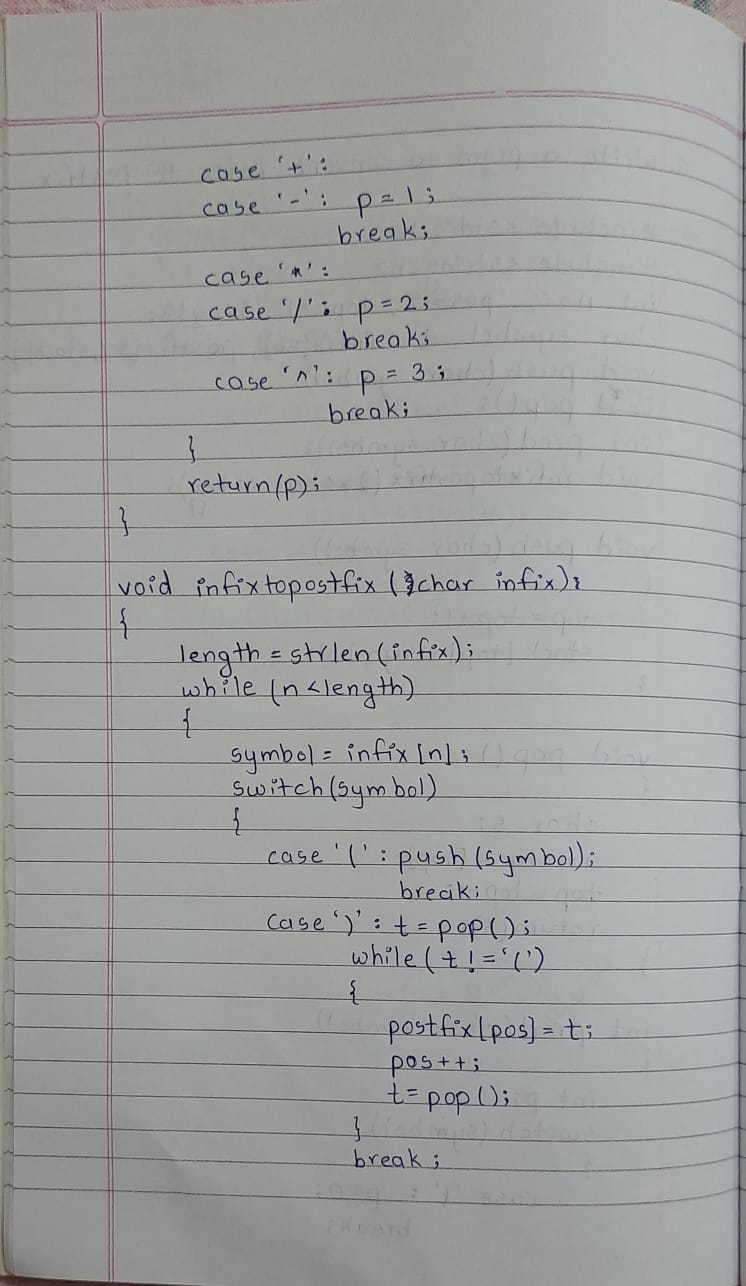 case '+':
case '-': p=1;
break;
case '*':
case '/': p=2;
break;
case '^': p=3;
break;
}
return(p);
}
void infixtopostfix (char infix);
{
length = strlen(infix);
while (n<length)
{
symbol = infix[n];
switch(symbol)
{
case '(': push(symbol);
break;
case ')': t=pop();
while(t!='(')
{
postfix[pos]=t;
pos++;
t=pop();
}
break;